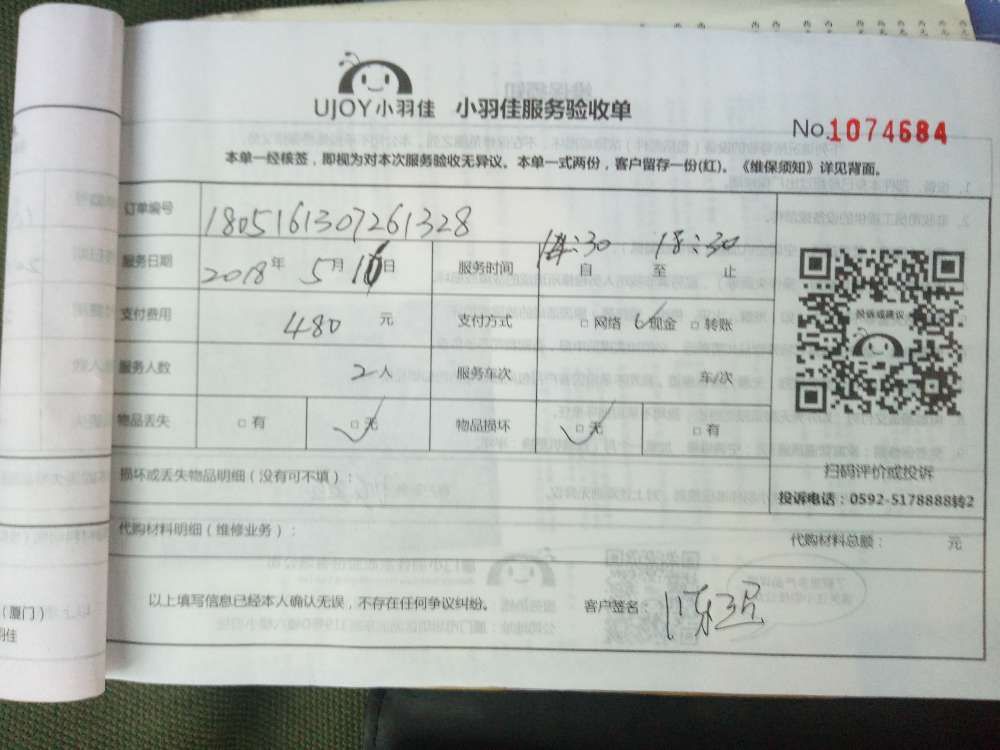 UJOY小羽佳 小羽佳服务验收单
No.1074684
本单一经核签，即视为对本次服务验收无异议。本单一式两份，客户留存一份(红)。《维保须知》详见背面。
订单编号 1805161307261328
服务日期 2018年 5月16日 服务时间 14:30 自 至 18:30 止
支付费用 480 元 支付方式 □网络 ✓现金 □转账
服务人数 2人 服务车次 车/次
物品丢失 □有 ☑无 物品损坏 ☑无 □有
损坏或丢失物品明细（没有可不填）：
代购材料明细（维修业务）： 代购材料总额： 元
以上填写信息已经本人确认无误，不存在任何争议纠纷。 客户签名：
投诉或建议
扫码评价或投诉
投诉电话：0592-5178888转2
（厦门）
羽佳